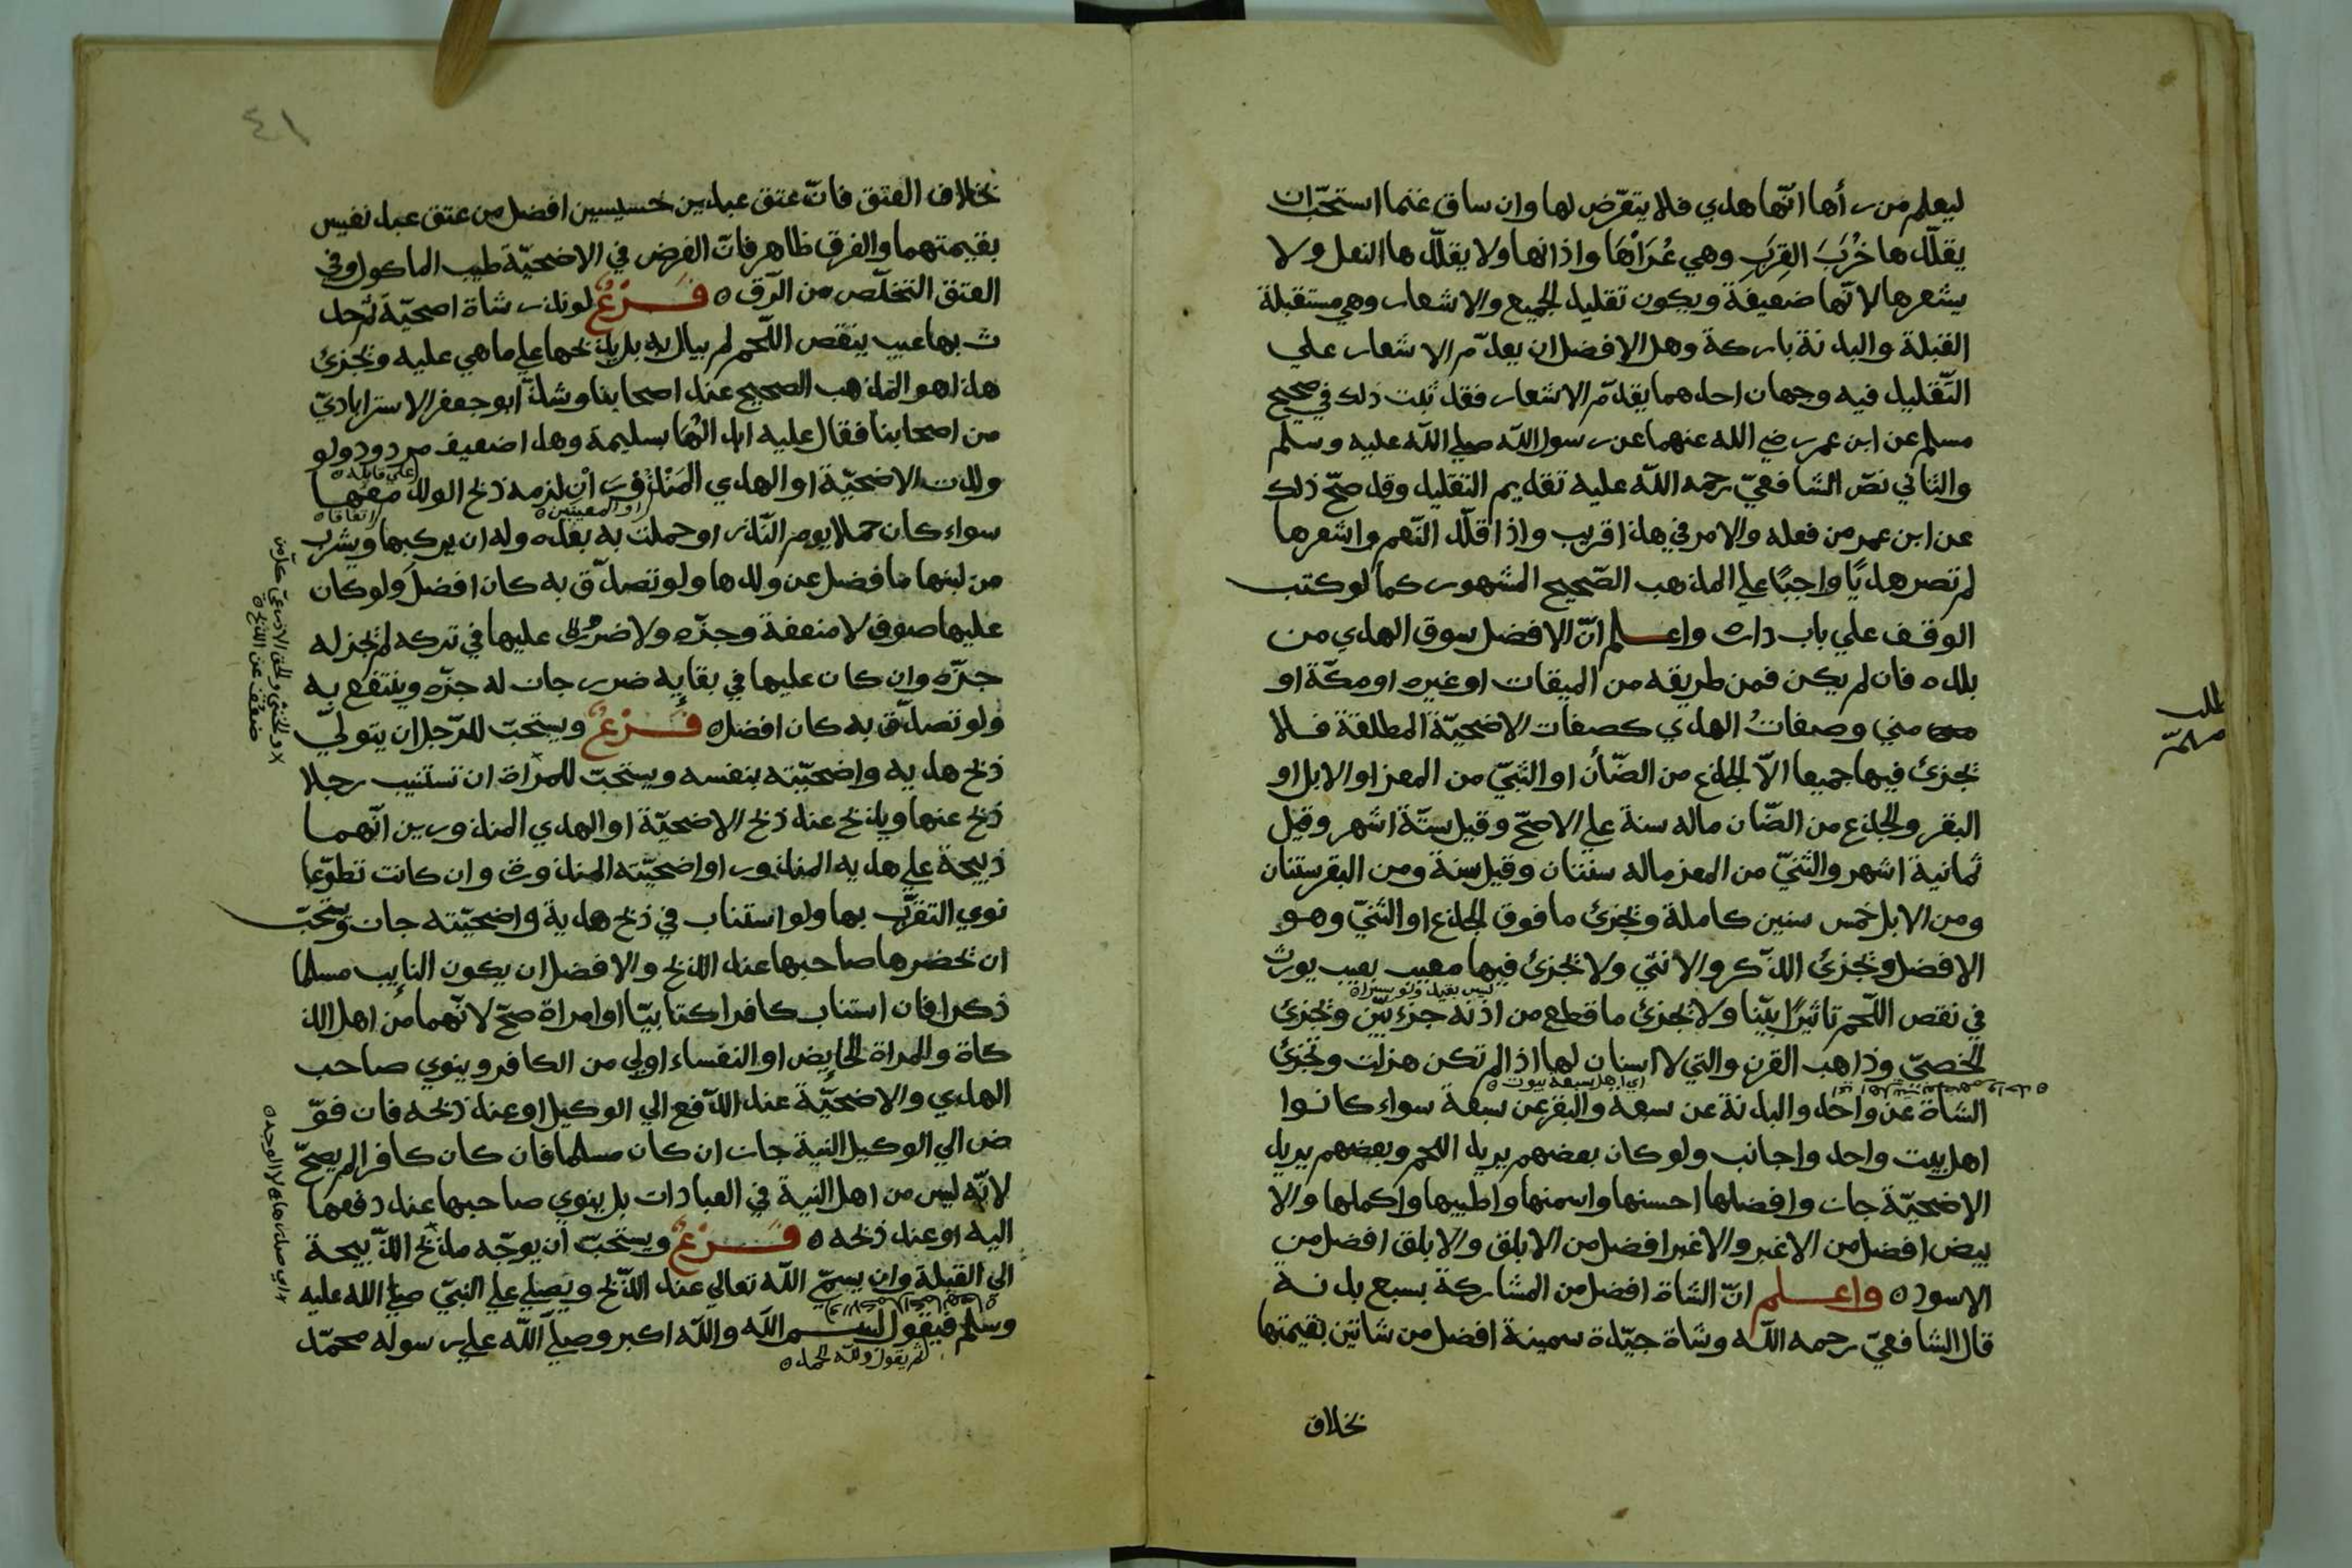 ليعلم من رأها انّها هدي فلا يتعرّض لها وان ساق غنما استحبّ ان
يقلّدها خُرَبَ القِرَبِ وهي عُرَاهَا واذانها ولا يقلّدها النعل ولا
يشعرها لانّها ضعيفة ويكون تقليد الجميع والاشعار وهي مستقبلة
القبلة والبدنة باركة وهل الافضل ان يقدّم الاشعار علي
التّقليد فيه وجهان احدهما يقدّم الاشعار فقد ثبت ذلك في صحيح
مسلم عن ابن عمر رضي الله عنهما عن رسول الله صلي الله عليه وسلم
والثاني نصّ الشافعيّ رحمه اللّه عليه تقديم التقليد وقد صحّ ذلك
عن ابن عمر من فعله والامر في هذا قريب واذا قلّد النّعم واشعرها
لم تصر هديًا واجبًا علي المذهب الصّحيح المشهور كما لو كتب
الوقف علي باب داره واعلم انّ الافضل سوق الهدي من
بلده فان لم يكن فمن طريقه من الميقات او غيره او مكّة او
مني وصفاتُ الهدي كصفات الاضحيّة المطلقة فلا
تجزئ فيها جميعا الاّ الجذع من الضّأن او الثنيّ من المعز او الابل او
البقر والجذع من الضّان ماله سنة علي الاصحّ وقيل ستّة اشهر وقيل
ثمانية اشهر والثّنيّ من المعز ماله سنتان وقيل سنة ومن البقر سنتان
ومن الابل خمس سنين كاملة وتجزئ ما فوق الجذع او الثّنيّ وهو
الافضل وتجزئ الذّكر والانثي ولا تجزئ فيها معيب بعيب يورث
في نقص اللّحم تاثيرًا بيّنا ولا تجزئ ما قطع من اذنه جزء بيّن وتجزئ
الخصيّ وذاهب القرن والتي لا اسنان لها اذا لم تكن هزلت وتجزئ
اي اهل سبعة بيوت
الشاة عن واحد والبدنة عن سبعة والبقر عن سبعة سواء كانوا
اهل بيت واحد واجانب ولو كان بعضهم يريد اللحم وبعضهم يريد
الاضحيّة جاز وافضلها احسنها واسمنها واطيبها واكملها والا
بيض افضل من الاغبر والاغبر افضل من الابلق والابلق افضل من
الاسود واعلم انّ الشاة افضل من المشاركة بسبع بدنة
قال الشافعيّ رحمه اللّه وشاة جيّدة سمينة افضل من شاتين بقيمتها
بخلاف
٤١
بخلاف العتق فانّ عتق عبدين خسيسين افضل من عتق عبد نفيس
بقيمتهما والفرق ظاهر فانّ الغرض في الاضحيّة طيب الماكول وفي
العتق التخلّص من الرّق فَرْعٌ لو نذر شاة اضحيّة ثم حد
ث بها عيب ينقص اللّحم لم يبال به بل يذبحها علي ما هي عليه وتجزئ
هذا هو المذهب الصحيح عند اصحابنا وشذّ ابو جعفر الاسترابادي
من اصحابنا فقال عليه ابدالُهَا بسليمة وهذا ضعيف مردود ولو
ولدت الاضحيّة او الهدي المَنْذُورَ انِ لزمه ذبح الولد معها
او المعينين
اتفاقا
سواء كان حملا يوم النّذر او حملت به بعده وله ان يركبها ويشرب
من لبنها ما فضل عن ولدها ولو تصدّق به كان افضل ولو كان
عليها صوف لا منفعة وجزّه ولا ضرر عليها في تركه لم تجز له
جزّه وان كان عليها في بقايه ضرر جاز له جزّه وينتفع به
ولو تصدّق به كان افضل فَرْعٌ ويستحبّ للرّجل ان يتولّي
ذبح هديه واضحيّته بنفسه ويستحبّ للمراة ان تستنيب رجلا
ذبح عنها ويذبح عند ذبح الاضحيّة او الهدي المنذورين انّهما
ذبيحة علي هديه المنذور او اضحيّته المنذورة وان كانت تطوّعا
نوي التقرّب بها ولو استناب في ذبح هدية واضحيّته جاز ويستحبّ
ان تحضرها صاحبها عند الذبح والافضل ان يكون النايب مسلما
ذكرا فان استناب كافرا كتابيّا او امراة صحّ لانّهما من اهل الذ
كاة والمراة الحايض او النفساء اولي من الكافر وينوي صاحب
الهدي والاضحيّة عند الدّفع الي الوكيل او عند ذبحه فان فوّ
ض الي الوكيل النية جاز ان كان مسلما فان كان كافرا لم يصحّ
لانّه ليس من اهل النية في العبادات بل ينوي صاحبها عند دفعها
اليه او عند ذبحه فَرْعٌ ويستحبّ ان يوجّه مذبح الذّبيحة
الي القبلة وان يسمّي اللّه تعالي عند الذّبح ويصلي علي النبيّ صلي الله عليه
وسلم فيقول بسم اللّه واللّه اكبر وصلّي اللّه علي رسوله محمّد
ثم يقول وللّه الحمد